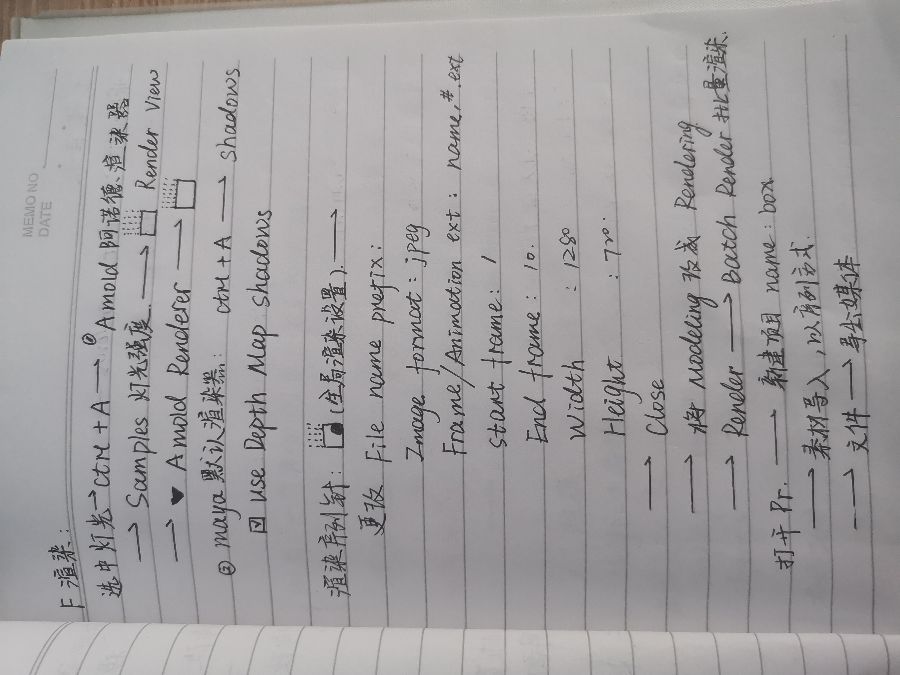 MEMO NO
DATE
F 渲染:
选中灯光→ctrl+A→①Arnold 阿诺德、渲染器
→ Samples 灯光强度 → Render View
→ Arnold Renderer →
② maya 默认渲染器: ctrl+A → shadows
use Depth Map Shadows
渲染序列针: (全局渲染设置) →
更改 File name prefix:
Image format: jpeg
Frame/Animation ext: name.#.ext
start frame: 1
End frame: 10.
Width : 1280
Height : 720.
→ Close
→ 将 Modeling 改成 Rendering
→ Render → Batch Render 批量渲染.
打开 Pr. → 新建项目 name: box
→ 素材导入,以序列方式.
→ 文件 → 导出媒体